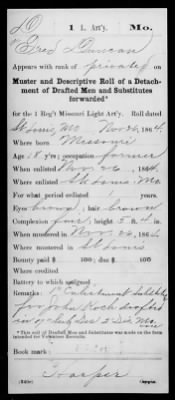 D 1 L. Art'y. Mo.
Fred Duncan
Appears with rank of private on
Muster and Descriptive Roll of a Detach-
ment of Drafted Men and Substitutes
forwarded*
for the 1 Reg't Missouri Light Art'y. Roll dated
St Louis, Mo Nov 26, 1864.
Where born Missouri
Age 18 y'rs; occupation farmer
When enlisted Nov 26, 1864.
Where enlisted St Louis, Mo.
For what period enlisted years.
Eyes brown; hair brown
Complexion fair; height 5 ft. 4 in.
When mustered in Nov 26, 186
Where mustered in St Louis
Bounty paid $ 100; due $ 100
Where credited
Battery to which assigned
Remarks: Substitute
for John Koch drafted
in Dis Mo
* This roll of Drafted Men and Substitutes was made on the form
intended for Volunteer Recruits.
Book mark:
Harper
Copyist.